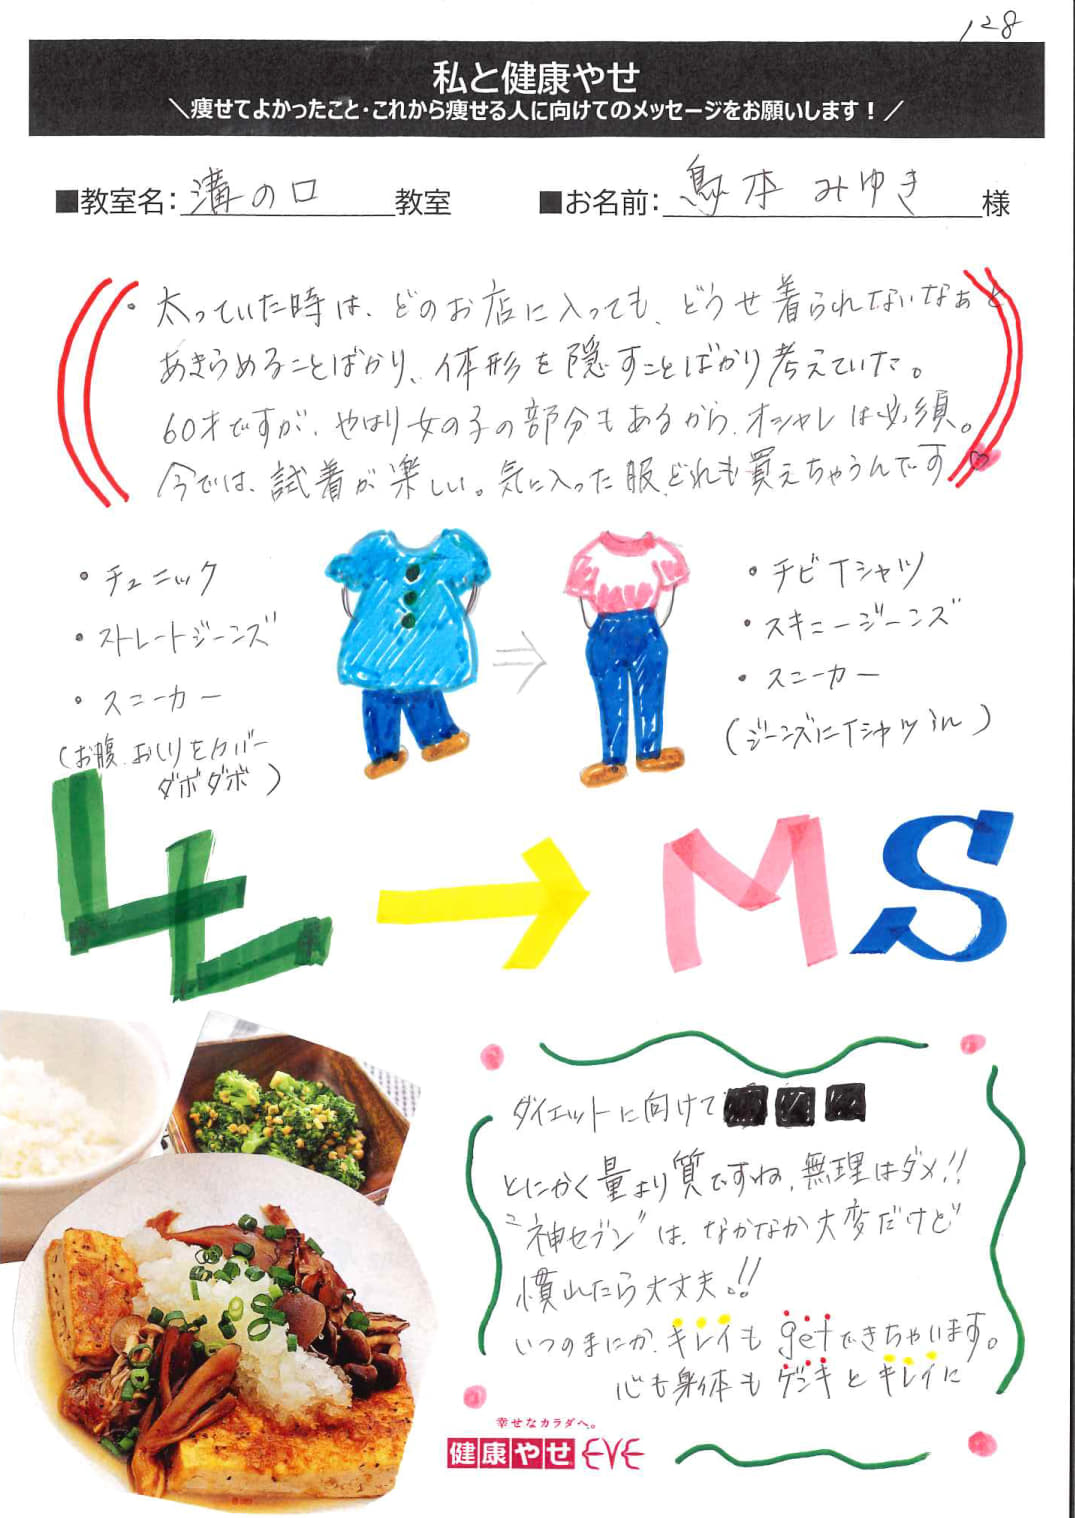 128
私と健康やせ
＼痩せてよかったこと・これから痩せる人に向けてのメッセージをお願いします！／
■教室名：溝の口教室
■お名前：鳥本 みゆき様
・太っていた時は、どのお店に入っても、どうせ着られないなぁと
あきらめることばかり、体形を隠すことばかり考えていた。
60才ですが、やはり女の子の部分もあるから、オシャレは必須。
今では、試着が楽しい。気に入った服、どれも買えちゃうんです♡
・チュニック
・ストレートジーンズ
・スニーカー
（お腹、おしりをカバー
ダボダボ）
⇒
・チビTシャツ
・スキニージーンズ
・スニーカー
（ジーンズにTシャツin）
LL → MS
ダイエットに向けて
とにかく量より質ですね、無理はダメ!!
"神セブン"は、なかなか大変だけど
慣れたら大丈夫!!
いつのまにか、キレイも getできちゃいます。
心も身体も ゲンキとキレイに
幸せなカラダへ。
健康やせEVE